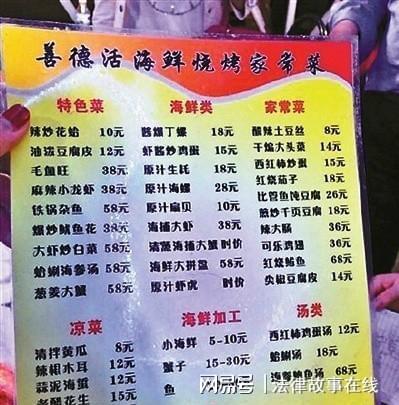 善德活海鲜烧烤家常菜
特色菜
辣炒花蛤 10元
油泼豆腐皮 12元
毛血旺 38元
麻辣小龙虾 38元
铁锅杂鱼 58元
爆炒鱿鱼花 38元
大虾炒白菜 58元
蛤蜊海参汤 58元
葱姜大蟹 58元
海鲜类
酱爆丁螺 18元
虾酱炒鸡蛋 15元
原汁生蚝 18元
原汁海螺 28元
原汁扇贝 10元
海捕大虾 38元
清蒸海捕大蟹 时价
海鲜大拼盘 58元
原汁虾虎 时价
家常菜
酸辣土豆丝 8元
干煸大头菜 14元
西红柿炒蛋 15元
红烧茄子 18元
比管鱼炖豆腐 26元
千页豆腐 18元
辣大肠 36元
可乐鸡翅 36元
红烧 鱼 68元
尖椒豆腐皮 14元
凉菜
清拌黄瓜 8元
辣椒木耳 12元
蒜泥海蜇 12元
老醋花生
海鲜加工
小海鲜 5-10元
蟹子 15-30元
鱼
汤类
西红柿鸡蛋汤 12元
蛤蜊汤 18元
海参鲍鱼汤 68元
网易号 | 法律故事在线